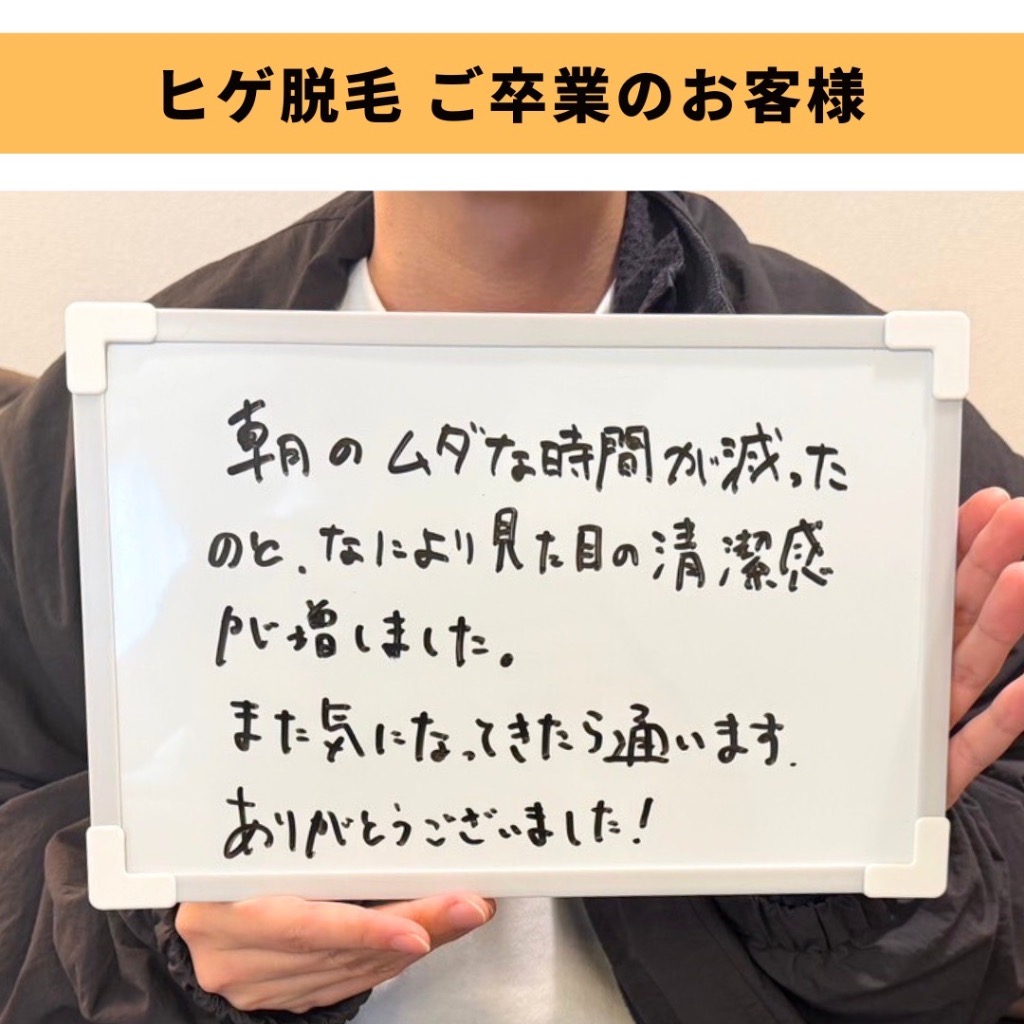 ヒゲ脱毛 ご卒業のお客様
朝のムダな時間が減った
のと、なにより見た目の清潔感
が増しました。
また気になってきたら通います.
ありがとうございました!